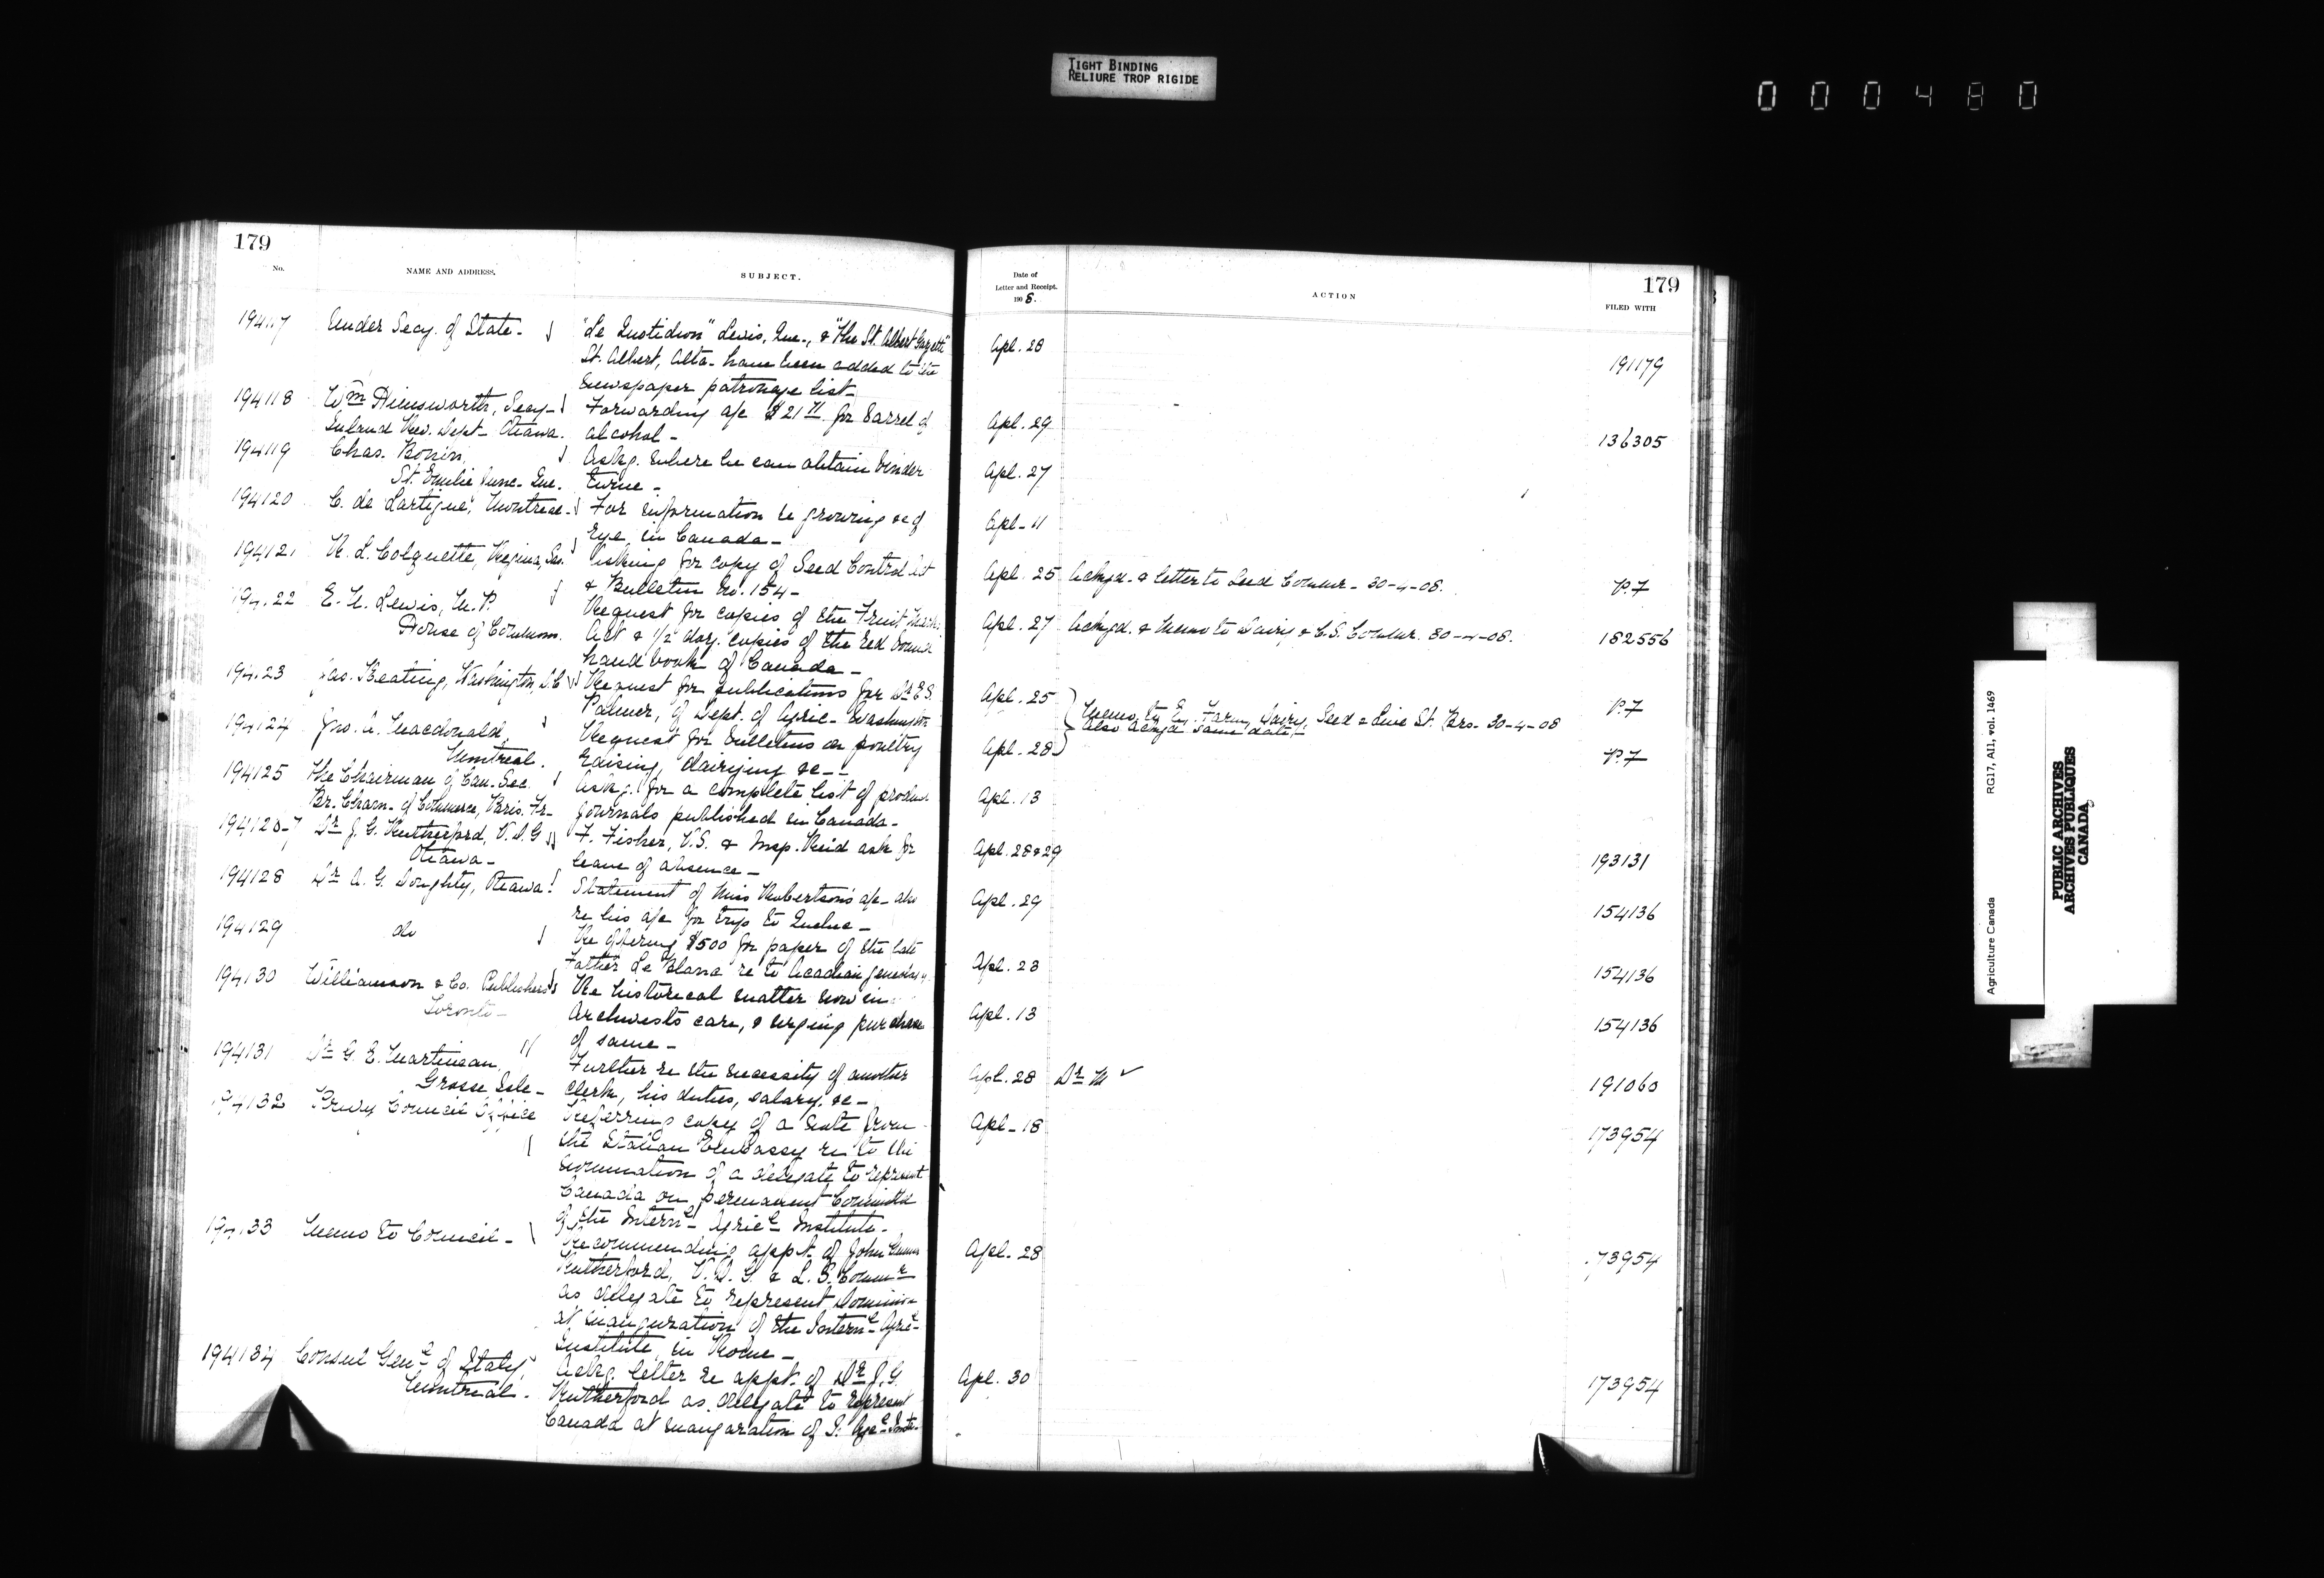 TIGHT BINDING
RELIURE TROP RIGIDE
000480
179
No.
NAME AND ADDRESS.
SUBJECT.
194117
Under Secy. of State-
"Le Quotidien" Levis, Que., & "The St. Albert Gazette"
St. Albert, Alta- have been added to the
newspaper patronage list-
194118
Wm Himsworth, Secy-
Inland Rev. Dept- Ottawa.
Forwarding a/c $21 for barrel of
alcohol-
194119
Chas. Bonin,
St. Emilie Junc- Que.
Askg. where he can obtain binder
twine-
194120
C. de Lartigue, Montreal-
For information re growing &c of
rye, in Canada-
194121
Regina, Sas.
Asking for copy of Seed Control Act
& Bulletin No. 154-
194122
E. N. Lewis, M.P.
House of Commons.
Request for copies of the Fruit Marks
Act & 1/2 doz. copies of the red bound
hand book of Canada-
194123
Jas. Keating, Washington, D.C
Request for publications for Dr E.S.
Palmer, of Dept. of Agric- Washington
194124
Jno. A. Macdonald,
Montreal.
Request for bulletins on poultry
raising, dairying &c--
194125
The Chairman of Can. Sec.
Br. Cham- of Commerce, Paris. Fr-
Askg. for a complete list of produce
journals published in Canada-
194126-7
Dr J. G. Rutherford, V.D.G
Ottawa-
F. Fisher, V.S. & Insp. Reid ask for
leave of absence-
194128
Dr A. G. Doughty, Ottawa.
Statement of Miss Robertson's a/c- also
re his a/c for trip to Quebec-
194129
do
Re offering $500 for paper of the late
Father Le Blanc re to Acadian
194130
Williamson & Co. Publishers
Toronto-
Re historical matter now in
Archivist's care, & urging purchase
of same-
194131
Dr G. E. Martineau,
Grosse Isle-
Further re the necessity of another
clerk, his duties, salary, &c-
194132
Privy Council Office
Referring copy of a note from
the Italian Embassy re to the
nomination of a delegate to represent
Canada on permanent Committee
of the Internl Agricl Institute-
194133
Memo to Council-
Recommending appt. of John Gunion
Rutherford, V.D.G. & L.S. Commr
as delegate to represent Dominion
at inauguration of the Internl Agricl
Institute, in Rome-
194134
Consul Genl of Italy,
Montreal.
Askg. letter re appt. of Dr J.G.
Rutherford as delegate to represent
Canada at inauguration of I. Agcl Inste-
Date of
Letter and Receipt.
1908.
ACTION
179
FILED WITH
Apl. 28
191179
Apl. 29
136305
Apl. 27
Apl- 11
Apl. 25 Ackgd. & letter to Seed Commr- 30-4-08.
P.7
Apl. 27 Ackgd. & memo to Dairy & C.S. Commr. 30-4-08.
182556
Apl. 25
Memo to Ex. Farm, Dairy, Seed & Live St. Brs- 30-4-08
Also Ackgd same date
P.7
Apl. 28
P.7
Apl. 13
Apl. 28&29
193131
Apl. 29
154136
Apl. 23
154136
Apl. 13
154136
Apl. 28 Dr M ✓
191060
Apl- 18
173954
Apl. 28
73954
Apl. 30
173954
Agriculture Canada
RG17, A11, vol. 1469
PUBLIC ARCHIVES
ARCHIVES PUBLIQUES
CANADA